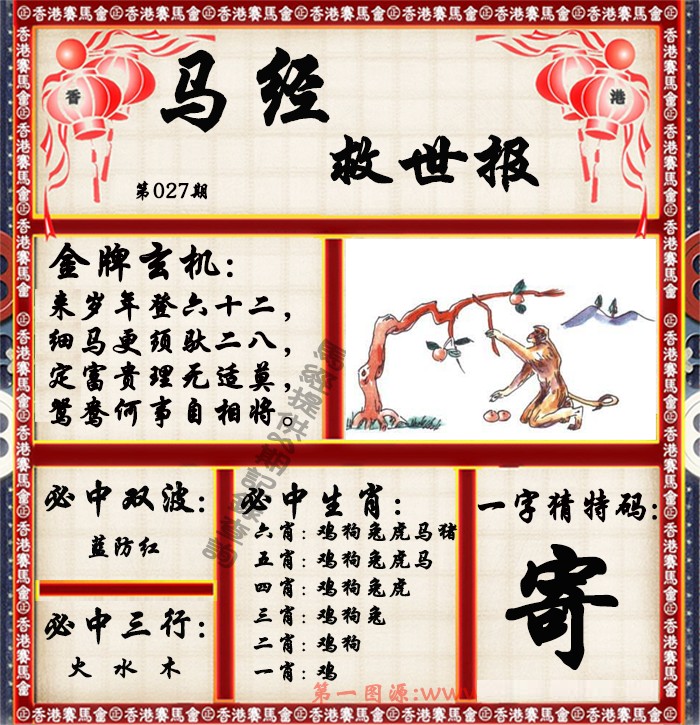 香港賽馬會
香 港
马经
救世报
第027期
金牌玄机:
来岁年登六十二,
细马更须驮二八,
定富贵理无适莫,
鸳鸯何事自相将。
必中双波:
蓝防红
必中三行:
火 水 木
必中生肖:
六肖:鸡狗兔虎马猪
五肖:鸡狗兔虎马
四肖:鸡狗兔虎
三肖:鸡狗兔
二肖:鸡狗
一肖:鸡
一字猜特码:
寄
第一图源:www